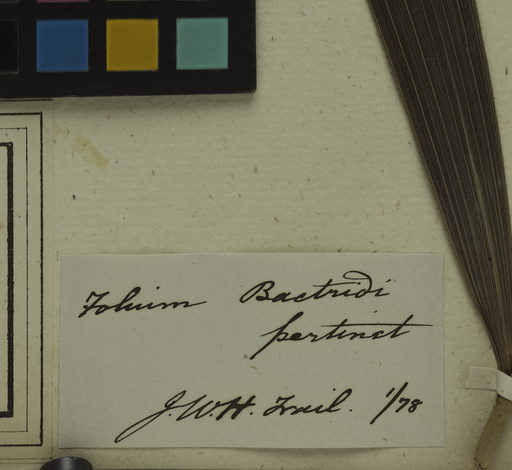 Folium Bactridi
pertinet
J.W.H. Trail. 1/78